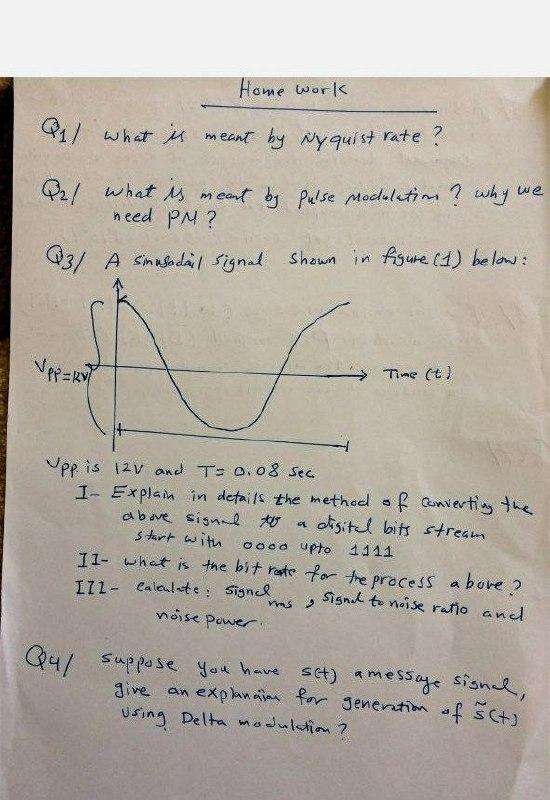 Home Work
Q1/ what is meant by Nyquist rate?
Q2/ what is meant by pulse modulation? why we
need PM?
Q3/ A sinusadail signal shown in figure (1) below:
VPP=12V
Time (t)
VPP is 12V and T= 0.08 sec
I- Explain in details the method of converting the
above signal to a digital bits stream
start with 0000 upto 1111
II- what is the bit rate for the process above?
III- calculate: signal rms, signal to noise ratio and
noise power.
Q4/ suppose you have s(t) a message signal,
give an explanaion for generation of s̃(t)
using Delta modulation?